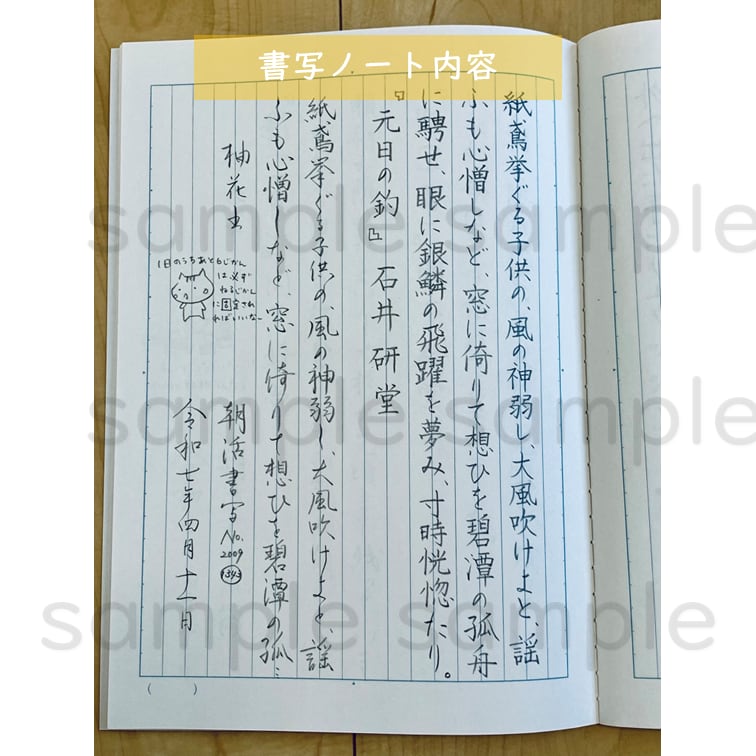 書写ノート内容
紙鳶挙ぐる子供の、風の神弱し、大風吹けよと、謡
ふも心憎しなど、窓に倚りて想ひを碧潭の孤舟
に騁せ、眼に銀鱗の飛躍を夢み、寸時恍惚たり。
『元日の釣』 石井研堂
紙鳶挙ぐる子供の、風の神弱し、大風吹けよと、謡
ふも心憎しなど、窓に倚りて想ひを碧潭の孤…
柚花虫
1日のうちあと6じかん
は、必ず
ねるじかん
に固定され
ればいいな〜
朝活書写 No.
2009
1343
令和七年四月十一日
sample sample
sample sample
sample sample